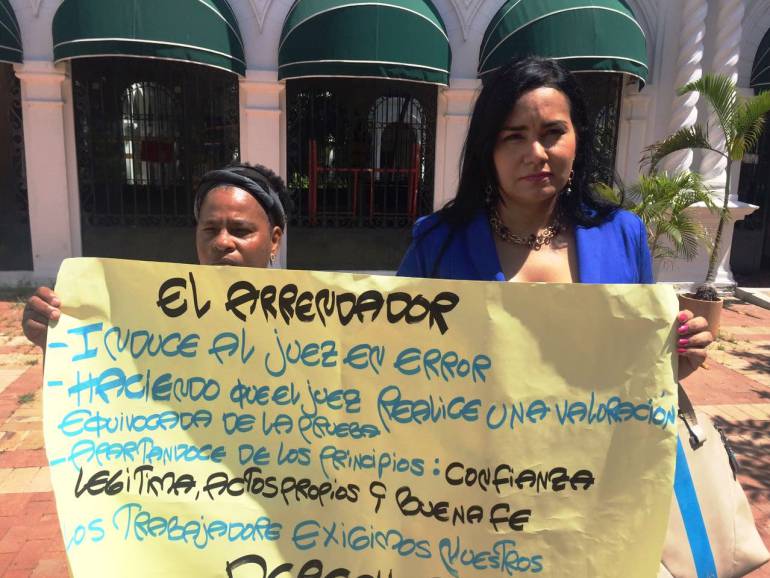 EL ARRENDADOR
- INDUCE AL JUEZ EN ERROR
- HACIENDO QUE EL JUEZ REALICE UNA VALORACIÓN
EQUIVOCADA DE LA PRUEBA
- APARTANDOCE DE LOS PRINCIPIOS: CONFIANZA
LEGITIMA, ACTOS PROPIOS Y BUENA FE
LOS TRABAJADORE EXIGIMOS NUESTROS